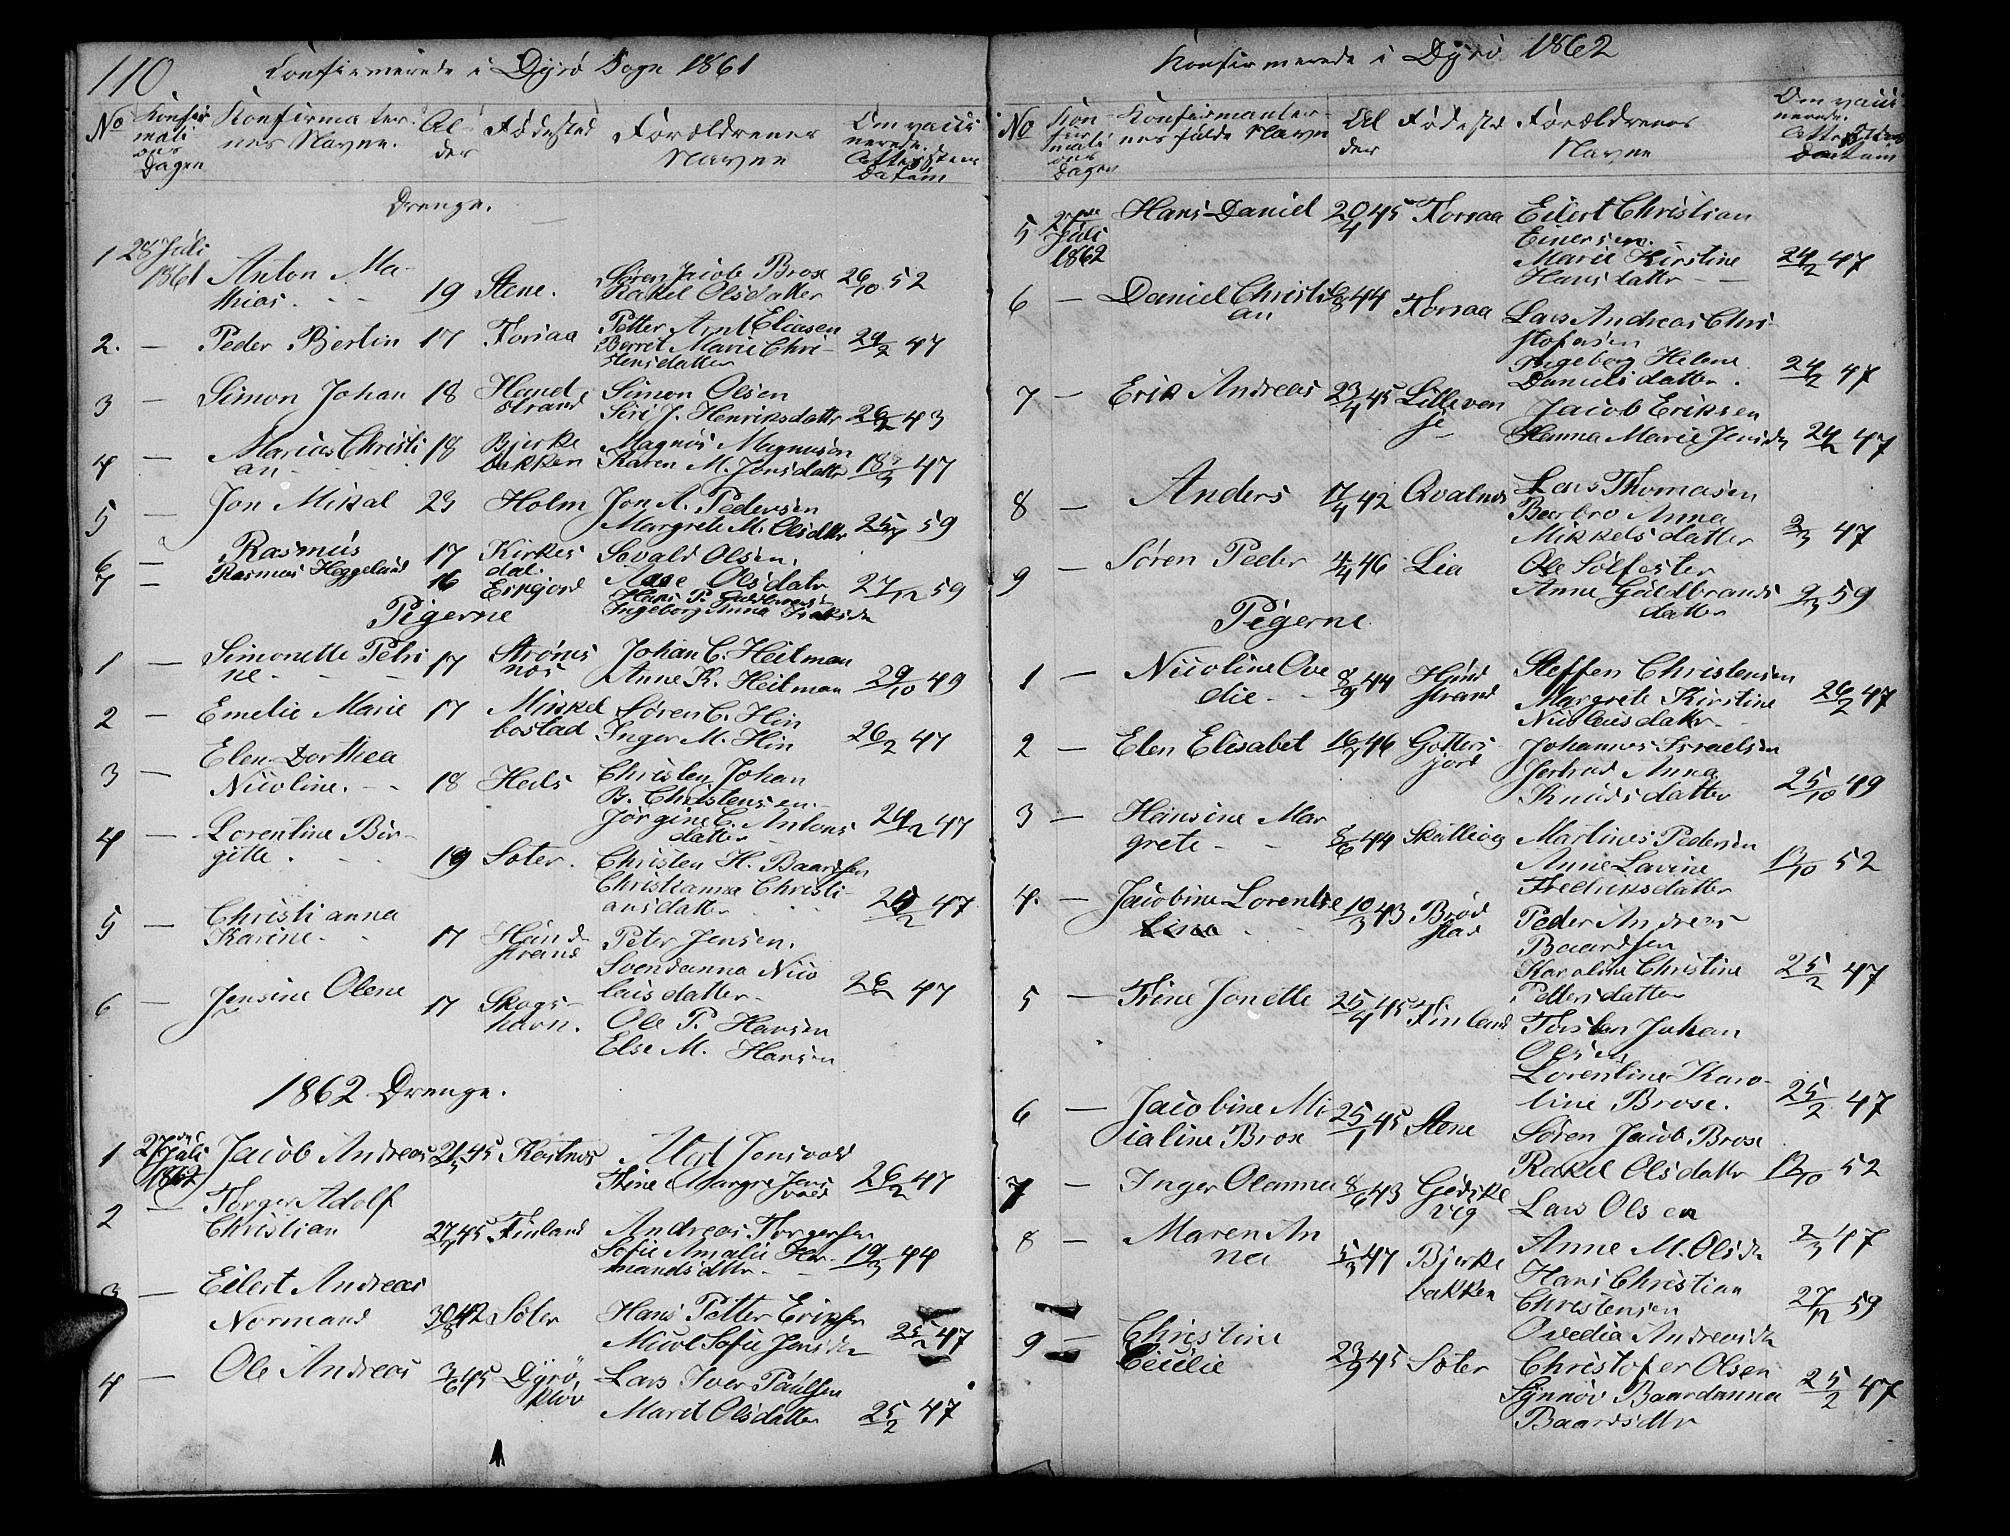 110.
Konfirmerede i Dyrø Sogn 1861
No
Konfir
mati
ons
Dagen
Konfirmater
nes Navne.
Al-
der
Fødested
Forældrenes
Navne
Om vacci
nerede.
Attestens
Datum
Drenge.
1 28 Juli 1861 Anton Ma-
thias. 19 Stene. Søren Jacob Brose
Rakel Olsdatter 26/10 52
2. — Peder Berlin 17 Forsaa Petter Arnt Eliasen
Berret Marie Chri-
stensdatter 24/2 47
3 — Simon Johan 18 Haand
strand Simon Olsen
Siri J. Henriksdattr 26/2 43
4 — Marius Christi
an 18 Bjerke
bakken Magnus Magnusen
Karen M. Jonsdattr 18/3 47
5 — Jon Mikal 23 Holm Jon A. Pedersen
Margrete M. Olsdttr 25/7 59
6 — Rasmus 17 Kirkes
dal. Sovald Olsen.
Aase Olsdatr 27/12 59
7 — Rasmus Heggelund 16 Espejord
Hans P.
Ingeborg Anna
Pigerne
1 — Simonette Petri
ne 17 Strøms
nøs Johan C. Heitman
Anne K. Heitman 29/10 49
2 — Emelie Marie 17 Mikkel
bostad Søren C. Hin
Inger M. Hin 26/2 47
3 — Elen Dorthea
Nicoline. 18 Heils Christen Johan
B. Christensen.
Jørgine C. Antons
datter 24/2 47
4 — Lorentine Bir-
gitte. 19 Soter. Christen H. Baardsen
Christianna Christi-
ansdatter 25/2 47
5 — Christianna
Karine 17 Haand
strand Peter Jensen.
Svendanna Nico
laisdatter 26/2 47
6 — Jensine Olene 17 Skogs-
havn. Ole P. Hansen
Else M. Hansen
1862 Drenge.
1 27de Juli
1862 Jacob Andreas 45 Kastnes Mart Jensvold
Trine Margre Jens
vold 26/2 47
2 — Torger Adolf
Christian 45 Finland Andreas Torgersen
Sofie Amalie Her-
mandsdttr 19/3 44
3 — Eilert Andreas
Normand 30/8 42 Soter Hans Petter Eriksen
Nicol Sofie Jensdtr 25/2 47
4 — Ole Andreas 3/6 45 Dyrø,
Kløv Lars Iver Paulsen
Marit Olsdatter 25/2 47
Konfirmerede i Dyrø 1862
No
Kon-
fir
mati
ons
Dagen
Konfirmanter-
nes fulde Navn
Al
der
Fødested
Forældrenes
Navne
Om vacci
nerede.
Datum
5 27de
Juli
1862 Hans Daniel 20/4 45 Forsaa Eilert Christian
Einersen.
Marie Kirstine
Hansdatter 24/2 47
6 — Daniel Christi
an 44 Forsaa Lars Andreas Chri-
stofersen
Ingeborg Helene
Danielsdatter. 24/2 47
7 — Erik Andreas 23/4 45 Lilleven
je Jacob Eriksen
Hanna Marie Jensdr 24/2 47
8 — Anders 17/4 42 Qvalnes Lars Thomasen
Barbro Anna
Mikkelsdatter 2/3 47
9 Søren Peder 4/4 46 Lia Ole Solfester
Anne Guldbrands
datter 9/3 59
Pigerne
1 — Nicoline Ove
die 8/9 44 Hund
strand Steffen Christensen
Margrete Kirstine
Nicolaisdatr 26/2 47
2 — Elen Elisabet 16/7 46 Gotters
jord Johannes Israelsen
Jertrud Anna
Knudsdatter 25/10 49
3 — Hansine Mar
grete 8/6 44 Skatlevig Martines Pedersen
Anne Lavine
Fredriksdatter 12/10 52
4. — Jacobine Lorentse
Lina 10/3 43 Brød
stad Peder Andreas
Baardsen
Karoline Christine
Pettersdatter 25/2 47
5 — Trine Jonette 25/4 45 Finland Torsten Johan
Olsen
Lorentine Karo-
line Brose. 25/2 47
6 — Jacobine Mi
ialine Brose 25/1 45 Stene Søren Jacob Brose
Rakel Olsdattr 12/10 52
7 — Inger Olanna 8/6 43 Gjeske
vig Lars Olsen
Anne M. Olsdr 2/3 47
8 — Maren An
na 5/3 47 Bjerke
bakken Hans Christian
Christensen
Ovedia Andreasdr 27/12 59
9 — Christine
Cecilie 23/9 45 Soter Christofer Olsen
Synnøv Baardanna
Baardsdttr 25/2 47